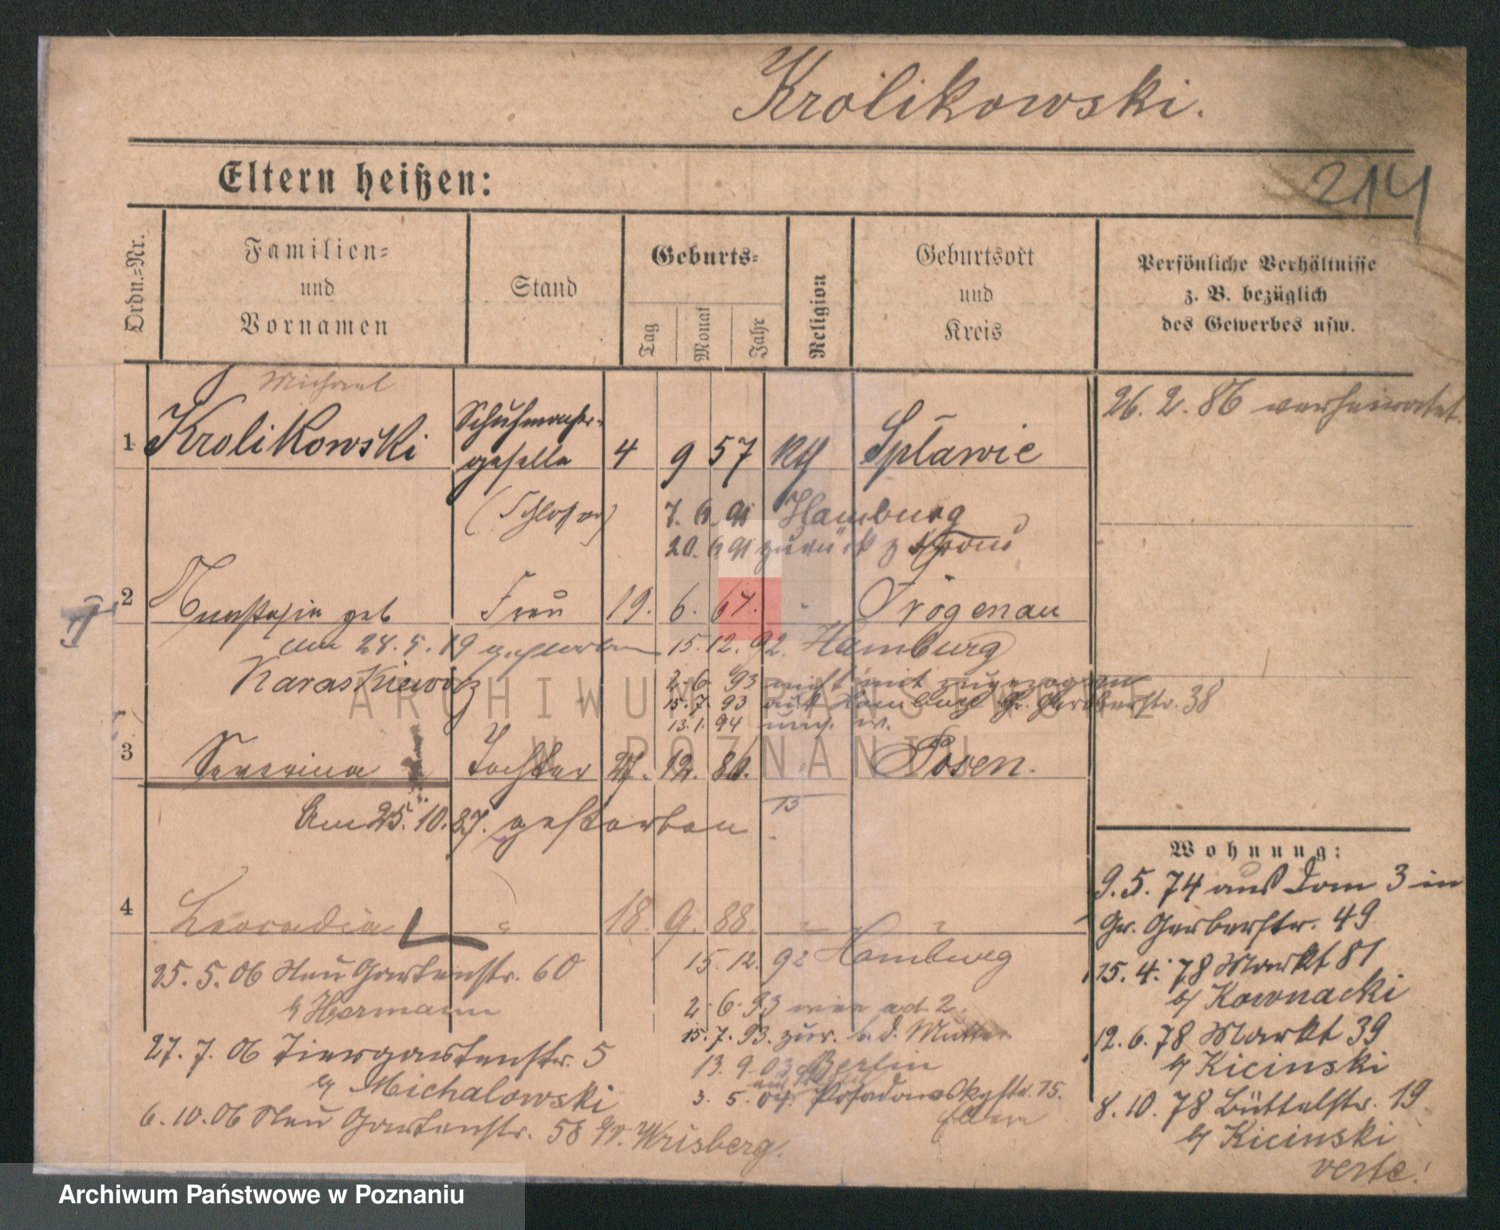 Królikowski.
214
Eltern heißen:
Ordn.-Nr.
Familien- und Vornamen
Stand
Geburts-
Tag
Monat
Jahr
Religion
Geburtsort und Kreis
Persönliche Verhältnisse
z. B. bezüglich
des Gewerbes usw.
Michael
26. 2. 86 verheiratet.
1 Krolikowski Schuhmacher-
geselle 4 9 57 Kth Splawie
(Schlosser) 7. 6. 91 Hamburg
20. 6 91 zurück z
2 Anastasia geb Frau 19. 6. 67. " Trögenau
am 28. 5. 19 gestorben 15. 12. 92. Hamburg
Karaskiewicz 2. 6. 93 nicht mit zugezogen
15. 7. 93 aus Hamburg Gr. Gerberstr. 38
13. 1. 94
3 Severina Tochter 27. 12. 86. Posen.
Am 25. 10. 87. gestorben
4 Leocadia " 18. 9. 88. " "
15. 12. 92 Hamburg
2. 6. 93 wie ad 2.
15. 7. 93. zur. b. d. Mutter
13. 9. 03 Berlin
3. 5. 04. Posadowskystr. 15.
25. 5. 06 Neu Gartenstr. 60
b/ Hermann
27. 7. 06 Tiergartenstr. 5
b/ Michalowski
6. 10. 06 Neu Gartenstr. 58 Wrisberg.
Wohnung:
9. 5. 74 aus Dom 3 in
Gr. Gerberstr. 49
15. 4. 78 Markt 81
b/ Kownacki
12. 6. 78 Markt 39
b/ Kicinski
8. 10. 78 Büttelstr. 19
b/ Kicinski
verte!
ARCHIWUM PAŃSTWOWE
W POZNANIU
Archiwum Państwowe w Poznaniu